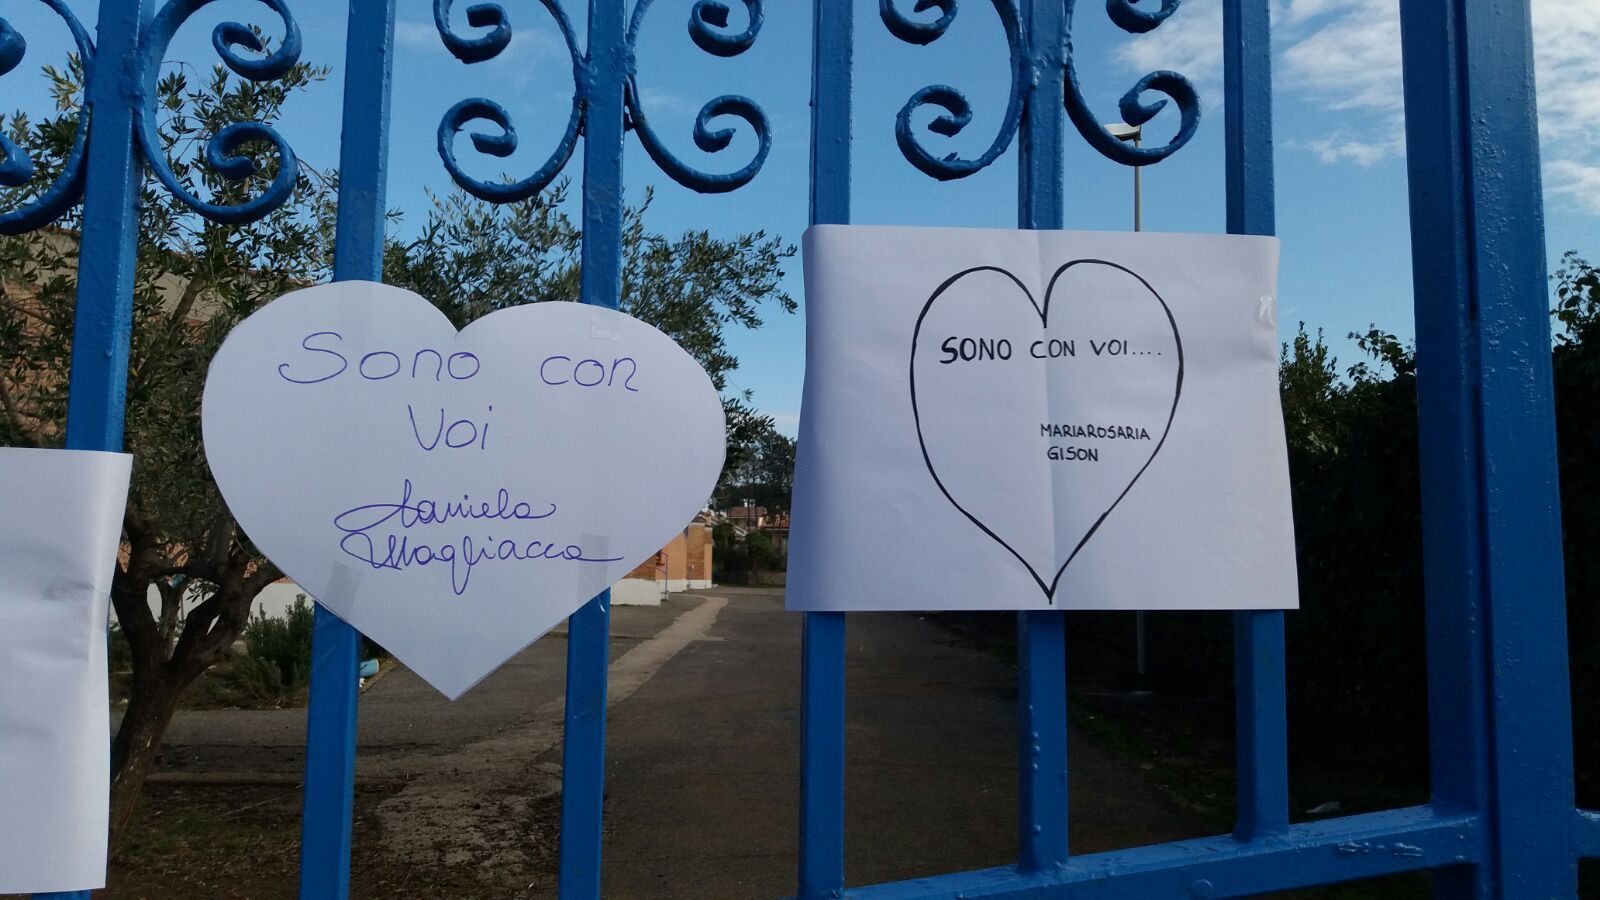 Sono con
Voi
Daniela
Magliacca
SONO CON VOI....
MARIAROSARIA
GISON